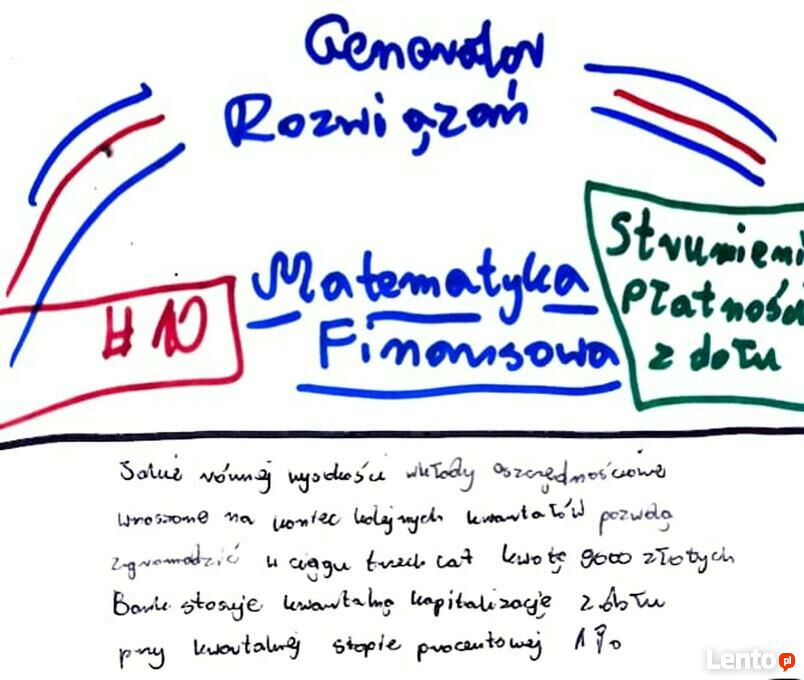 Generator
Rozwiązań
Strumieni
Płatności
z dołu
#10
Matematyka
Finansowa
Jakie równej wysokości wkłady oszczędnościowe
wnoszone na koniec kolejnych kwartałów pozwolą
zgromadzić w ciągu trzech lat kwotę 9000 złotych
Bank stosuje kwartalną kapitalizację z dołu
przy kwartalnej stopie procentowej 1%
Lento.pl